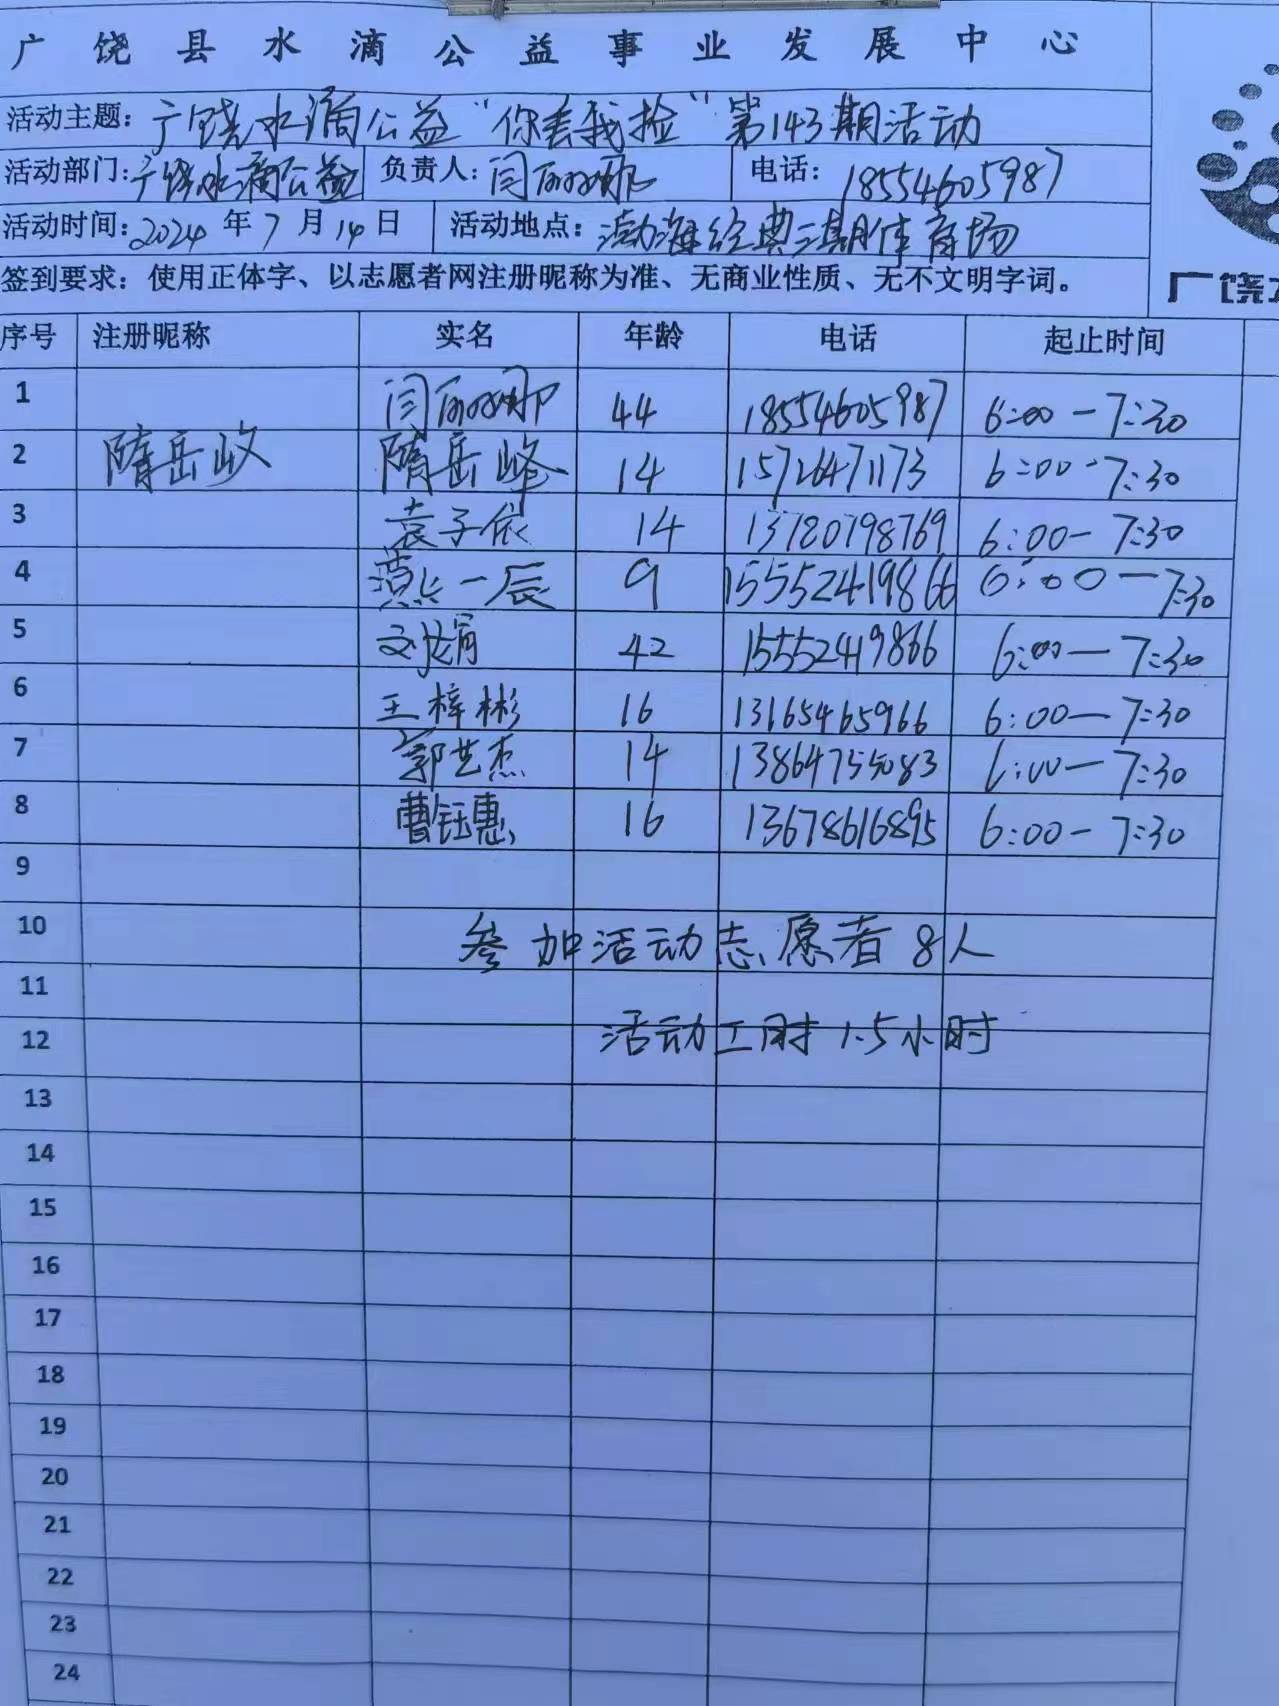 广饶县水滴公益事业发展中心
活动主题：广饶水滴公益“你丢我捡”第143期活动
活动部门：广饶水滴公益 负责人：闫丽娜 电话：18554605987
活动时间：2024年7月14日 活动地点：渤海经典三期体育场
签到要求：使用正体字、以志愿者网注册昵称为准、无商业性质、无不文明字词。
广饶
序号 注册昵称 实名 年龄 电话 起止时间
1 闫丽娜 44 18554605987 6:00-7:30
2 隋岳峰 隋岳峰 14 15726471173 6:00-7:30
3 袁子依 14 13780798769 6:00-7:30
4 燕一辰 9 15552419866 6:00-7:30
5 刘娟 42 15552419866 6:00-7:30
6 王梓彬 16 13165465966 6:00-7:30
7 郭艺杰 14 13864755083 6:00-7:30
8 曹钰惠 16 13678616895 6:00-7:30
9
10 参加活动志愿者8人
11
12 活动工时1.5小时
13
14
15
16
17
18
19
20
21
22
23
24